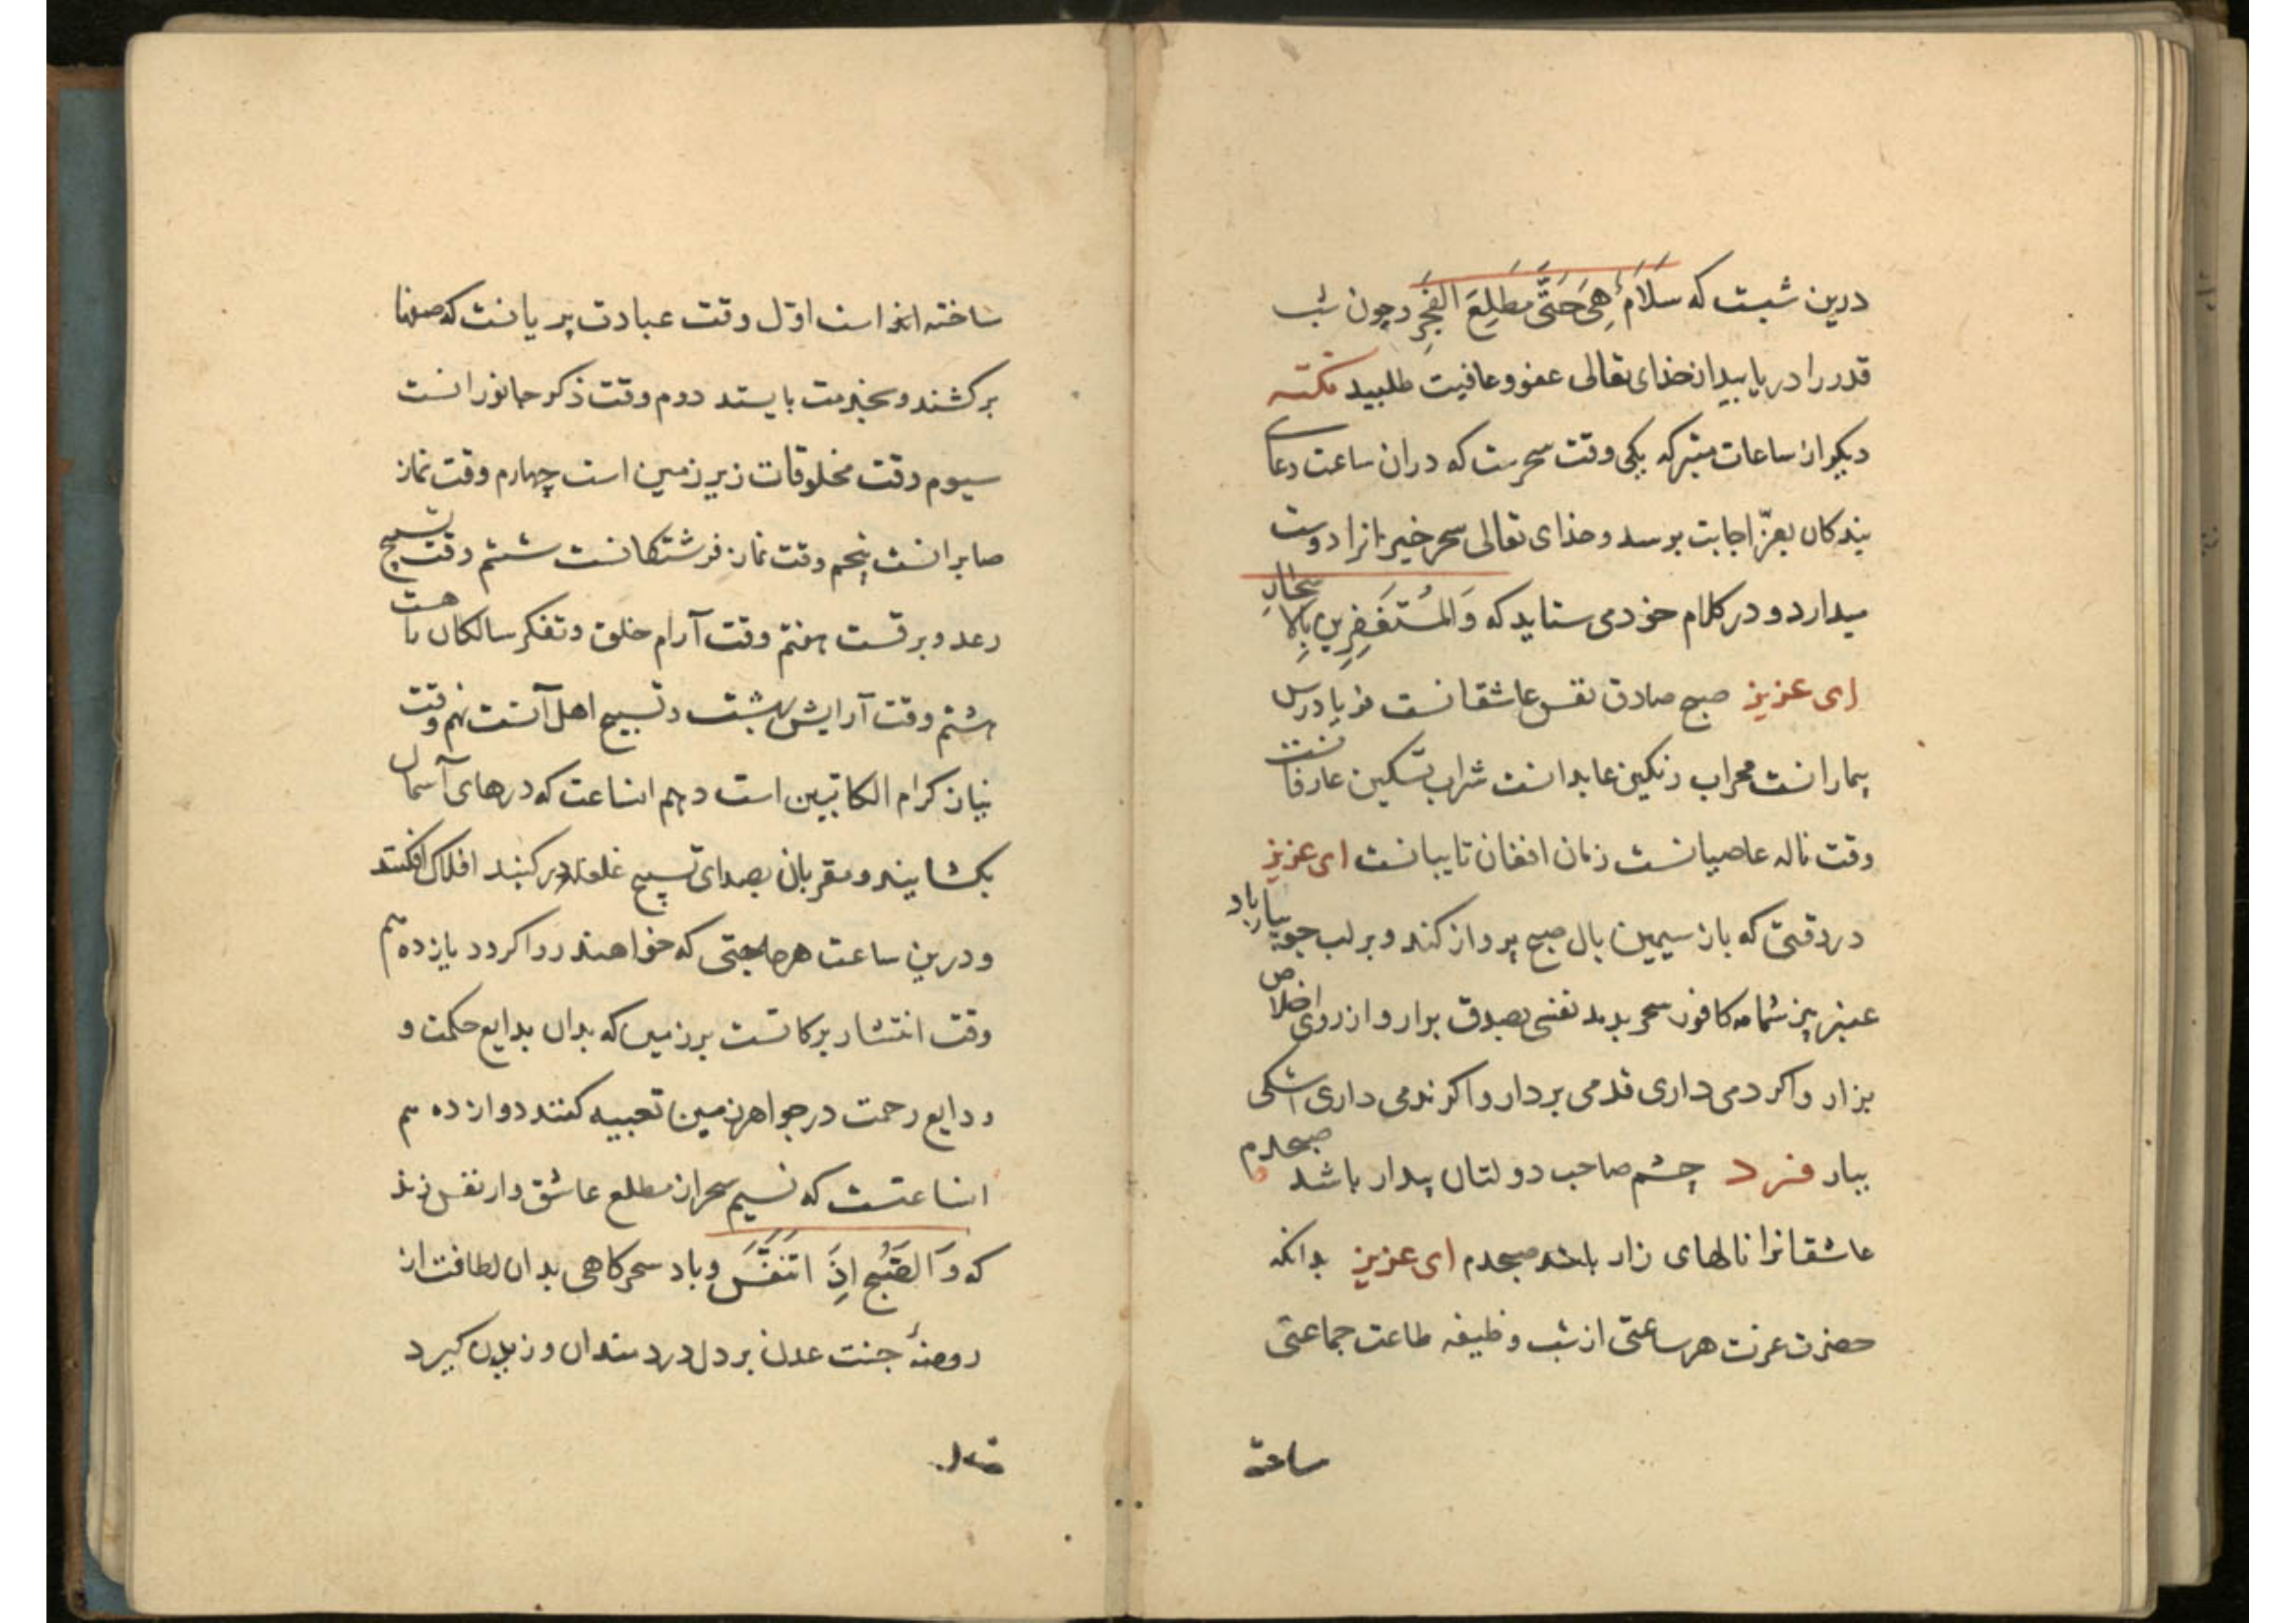 درین شبست که سَلَامٌ هِیَ حَتَّی مَطلِعَ الفَجرِ وچون شب
قدر را دریابید از خذای تعالی عفو وعافیت طلبید نکته
دیکر از ساعات متبرکه یکی وقت سحرست که دران ساعت دعای
بندکان بعزّ اجابت برسد وخذای تعالی سحرخیزانرا دوست
میدارد و در کلام خود می ستاید که وَالمُستَغفِرِینَ بِالاَسحَارِ
ای عزیز صبح صادق نفس عاشقانست فریادرس
بیمارانست محراب رنکین عابدانست شراب تسکین عارفانست
وقت ناله عاصیانست زمان افغان تایبانست ای عزیز
دروقتی که باز سیمین بال صبح پرواز کند وبرلب جویبار باد
عنبر بیز شمامه کافور سحر بدمد نفسی بصدق برار واز روی اخلاص
بزار واکر دمی داری قدمی بردار واکر ندمی داری اشکی
ببار فرد چشم صاحب دولتان بیدار باشد صبحدم
عاشقانرا نالهای زار باشد صبحدم ای عزیز بدانکه
حضرت عزت هر ساعتی از شب وظیفه طاعت جماعتی
ساخته
ساخته اند است اوّل وقت عبادت پریانست که صفها
برکشند وبخدمت بایستند دوم وقت ذکر جانورانست
سیوم وقت مخلوقات زیر زمین است چهارم وقت نماز
صابرانست پنجم وقت نماز فرشتکانست ششم وقت تسبیح
رعد وبرقست هفتم وقت آرام خلق وتفکر سالکان راهست
هشتم وقت آرایش بهشت وتسبیح اهل آنست نهم وقت
نیاز کرام الکاتبین است دهم انساعت که درهای آسمان
بکشایند ومقربان بصدای تسبیح غلغله در کنبد افلاک افکنند
ودرین ساعت هر حاجتی که خواهند روا کردد یازدهم
وقت انتشار برکاتست برزمین که بدان بدایع حکمت و
ودایع رحمت در جواهر زمین تعبیه کنند دوازدهم
انساعتست که نسیم سحر از مطلع عاشق وار نفس زند
که وَالصُّبحِ اِذَا تَنَفَّسَ وباد سحرکاهی بدان لطافت از
روضهٔ جنت عدن بر دل دردمندان وزیدن کیرد